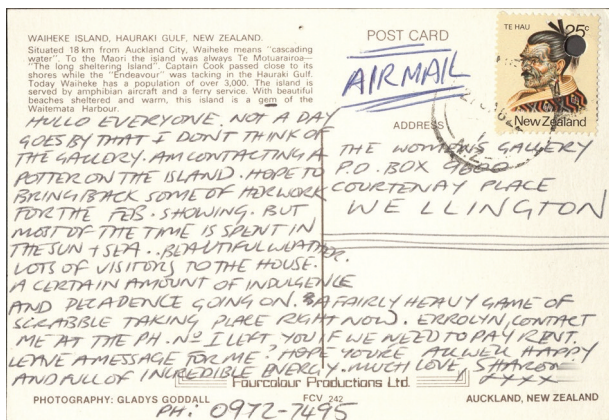 WAIHEKE ISLAND, HAURAKI GULF, NEW ZEALAND.
Situated 18 km from Auckland City, Waiheke means "cascading
water". To the Maori the island was always Te Motuarairoa—
"The long sheltering Island". Captain Cook passed close to its
shores while the "Endeavour" was tacking in the Hauraki Gulf.
Today Waiheke has a population of over 3,000. The island is
served by amphibian aircraft and a ferry service. With beautiful
beaches sheltered and warm, this island is a gem of the
Waitemata Harbour.
HULLO EVERYONE. NOT A DAY
GOES BY THAT I DON'T THINK OF
THE GALLERY. AM CONTACTING A
POTTER ON THE ISLAND. HOPE TO
BRING BACK SOME OF HER WORK
FOR THE FEB. SHOWING. BUT
MOST OF THE TIME IS SPENT IN
THE SUN + SEA.. BEAUTIFUL WEATHER.
LOTS OF VISITORS TO THE HOUSE.
A CERTAIN AMOUNT OF INDULGENCE
AND DECADENCE GOING ON. A FAIRLY HEAVY GAME OF
SCRABBLE TAKING PLACE RIGHT NOW. ERROLYN, CONTACT
ME AT THE PH. No I LEFT, YOU IF WE NEED TO PAY RENT.
LEAVE A MESSAGE FOR ME. HOPE YOU'RE ALL WELL HAPPY
AND FULL OF INCREDIBLE ENERGY. MUCH LOVE SHARON
XXXX
POST CARD
AIRMAIL
TE HAU
25c
New Zealand
ADDRESS
THE WOMEN'S GALLERY
P.O. BOX 9600
COURTENAY PLACE
WELLINGTON
Fourcolour Productions Ltd.
PHOTOGRAPHY: GLADYS GODDALL
FCV 242
AUCKLAND, NEW ZEALAND
PH: 0972-7495